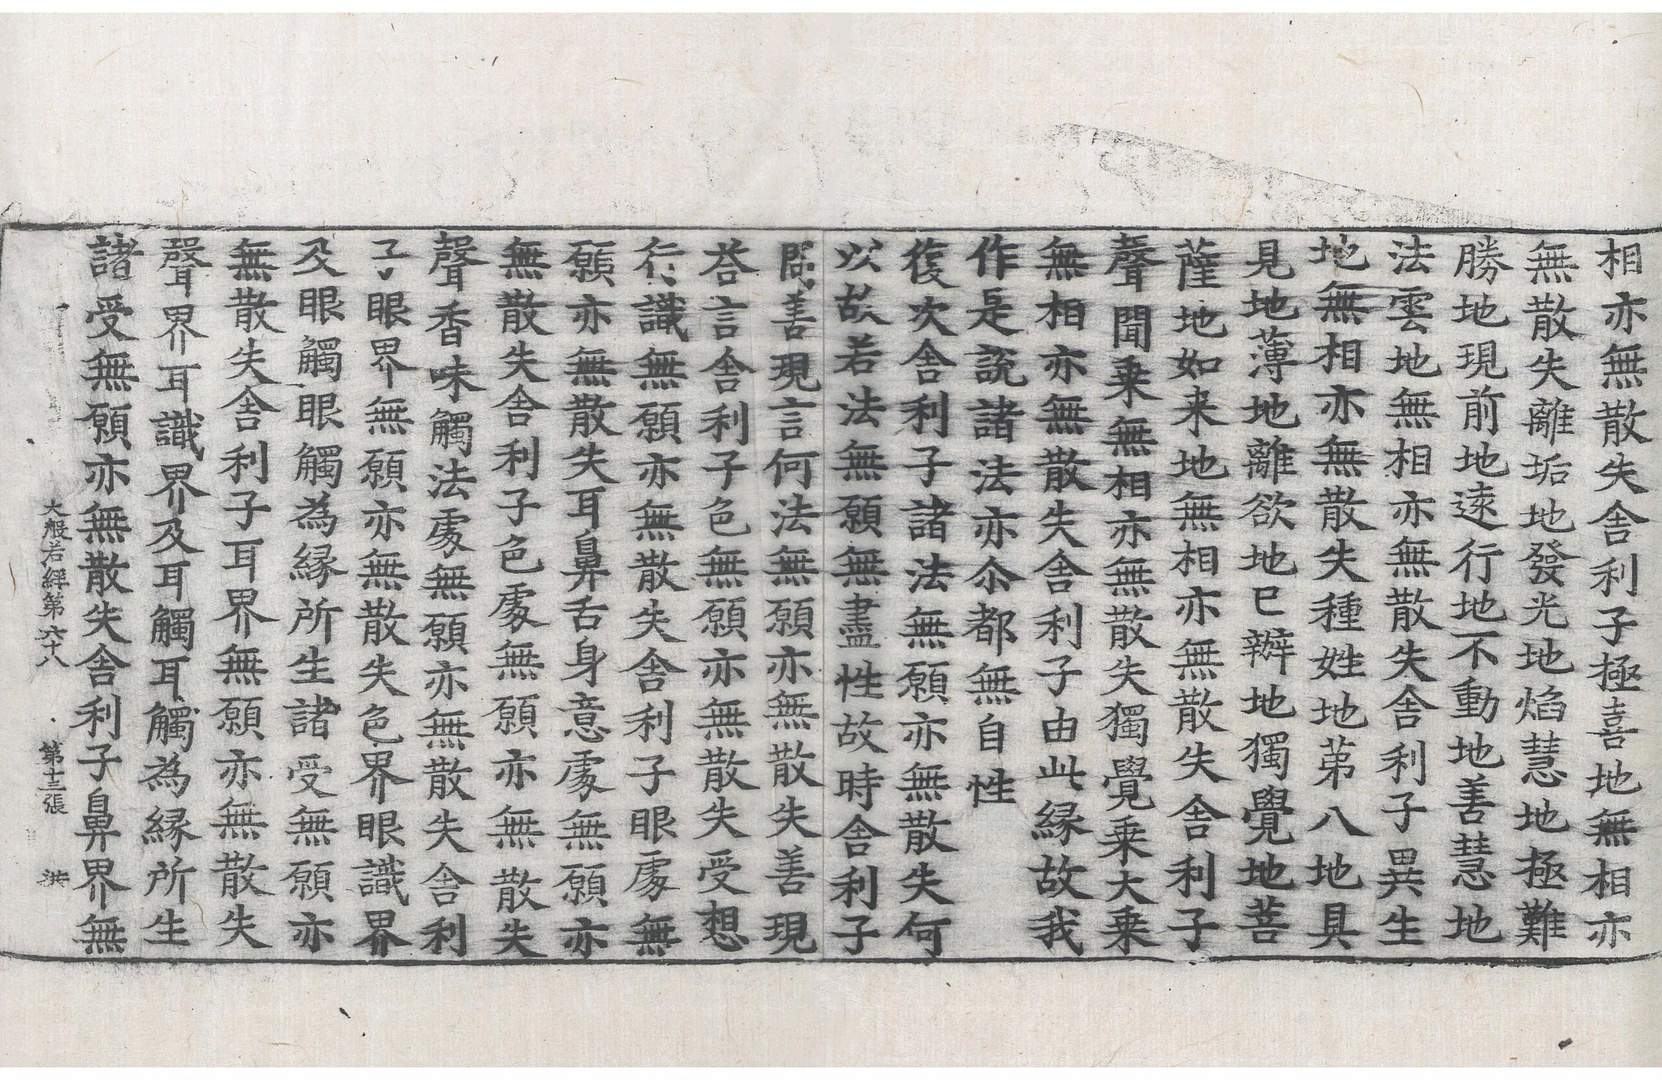 相亦無散失舍利子極喜地無相亦
無散失離垢地發光地焰慧地極難
勝地現前地遠行地不動地善慧地
法雲地無相亦無散失舍利子異生
地無相亦無散失種姓地苐八地具
見地薄地離欲地已辦地獨覺地菩
薩地如来地無相亦無散失舍利子
聲聞乗無相亦無散失獨覺乗大乗
無相亦無散失舍利子由此縁故我
作是說諸法亦尒都無自性
復次舍利子諸法無願亦無散失何
以故若法無願無盡性故時舍利子
問善現言何法無願亦無散失善現
荅言舍利子色無願亦無散失受想
行識無願亦無散失舍利子眼處無
願亦無散失耳鼻舌身意處無願亦
無散失舍利子色處無願亦無散失
聲香味觸法處無願亦無散失舍利
子眼界無願亦無散失色界眼識界
及眼觸眼觸為縁所生諸受無願亦
無散失舍利子耳界無願亦無散失
聲界耳識界及耳觸耳觸為縁所生
諸受無願亦無散失舍利子鼻界無
大般若經第六十八 第十三張 洪